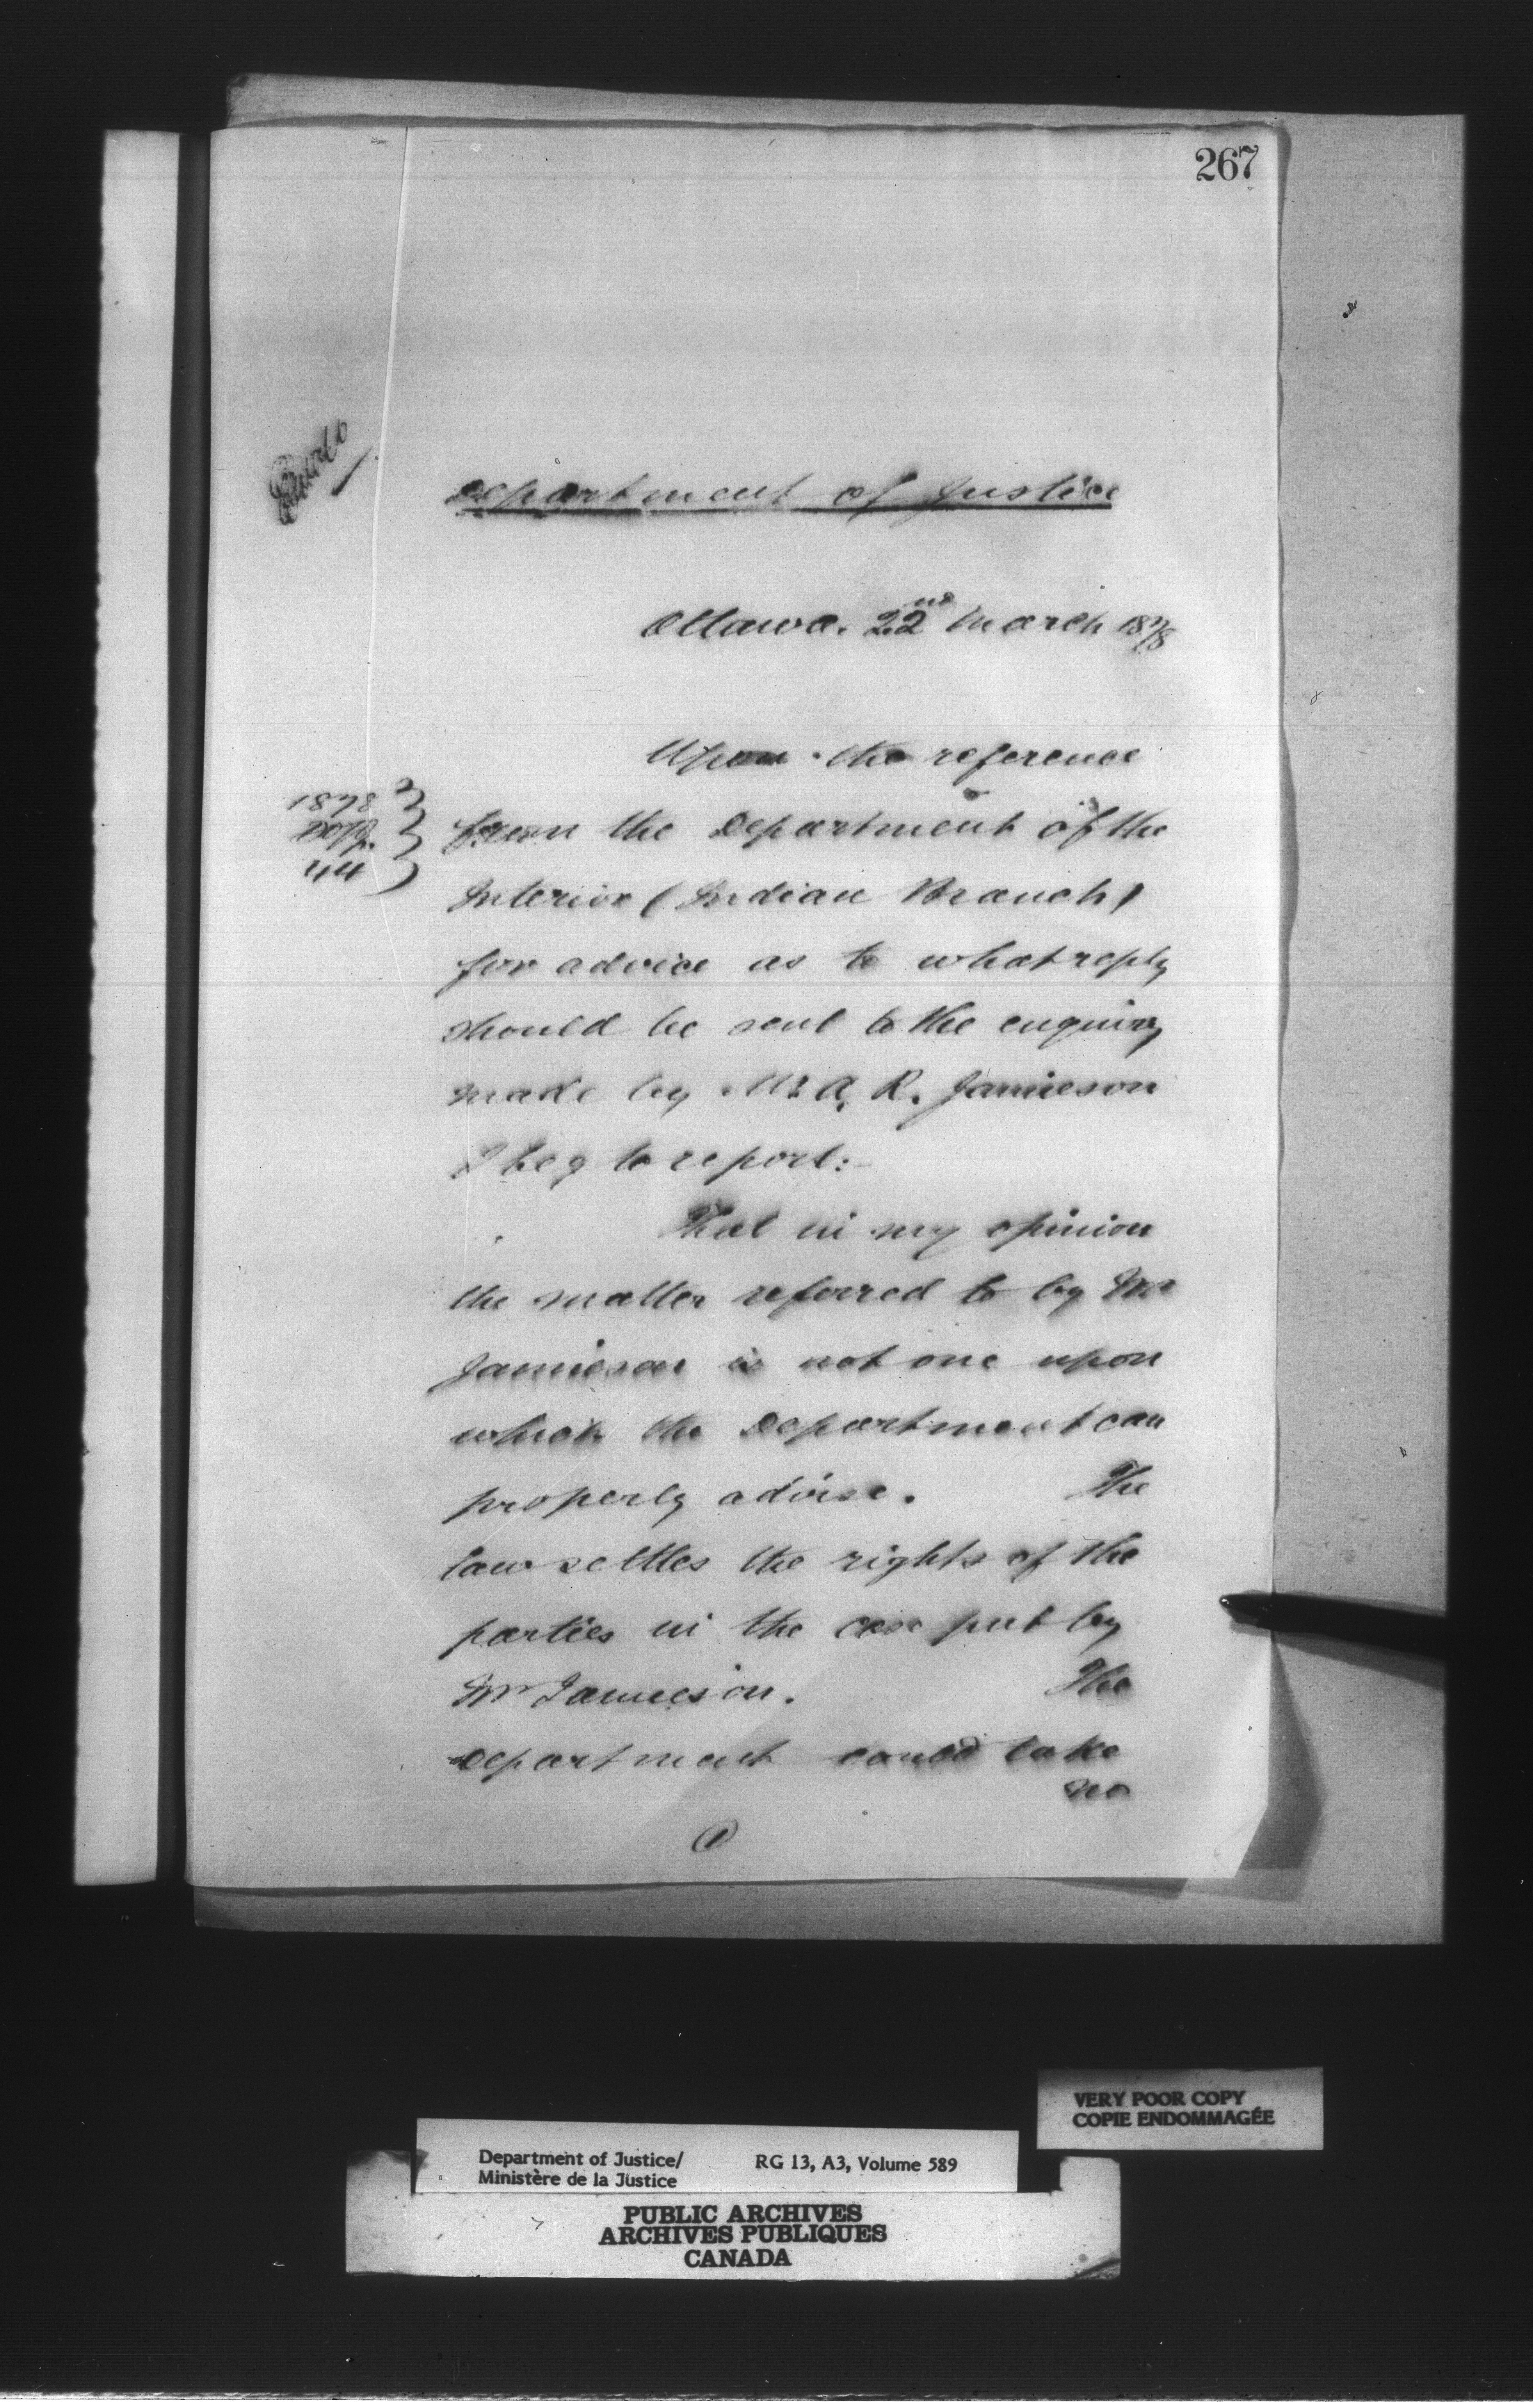 267
Department of Justice
Ottawa. 22nd March 1878
Upon the reference
1878
44
from the Department of the
Interior (Indian Branch)
for advice as to what reply
should be sent to the enquiry
made by Mr A. R. Jamieson
I beg to report:-
That in my opinion
the matter referred to by Mr
Jamieson is not one upon
which the Department can
properly advise. The
law settles the rights of the
parties in the case put by
Mr Jamieson. The
Department could take
no
1
VERY POOR COPY
COPIE ENDOMMAGÉE
Department of Justice/ RG 13, A3, Volume 589
Ministère de la Justice
PUBLIC ARCHIVES
ARCHIVES PUBLIQUES
CANADA